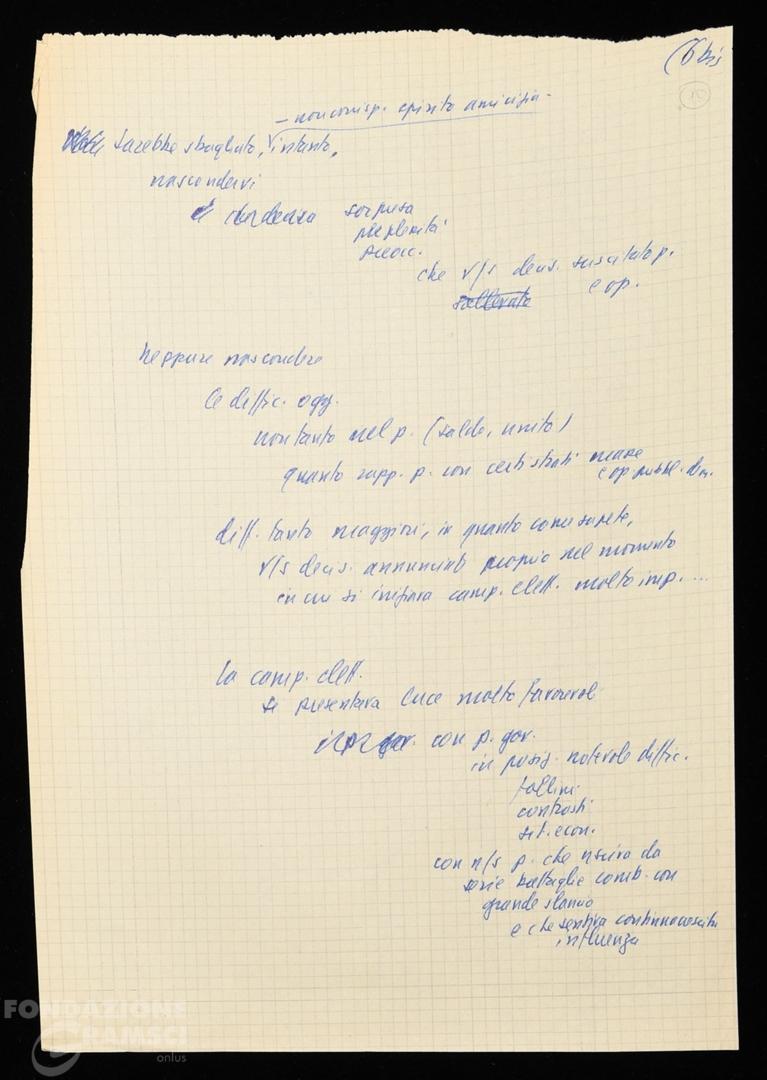 (6 bis
– non corrisp. spirito amicizia –
Sarebbe sbagliato, intanto,
nascondervi
sorpresa
perplessità
preocc.
che v/s decis. suscitato p.
sollevato e op.
Neppure nascondere
le diffic. ogg.
non tanto nel p. (saldo, unito)
quanto rapp. p. con certi strati masse
e op. pubbl. dem.
diff. tanto maggiori, in quanto come sapete,
v/s decis. annunciata proprio nel momento
in cui si iniziava camp. elett. molto imp. ...
La camp. elett.
si presentava luce molto favorevole
con p. gov.
in posiz. notevole diffic.
fallim.
contrasti
sit. econ.
con n/s p. che usciva da
serie battaglie comb. con
grande slancio
e che sentiva continua crescita
influenza
FONDAZIONE
GRAMSCI
onlus